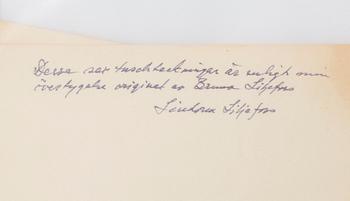 Dessa sex tuschteckningar är enligt min
övertygelse original av Bruno Liljefors
Lindorm Liljefors